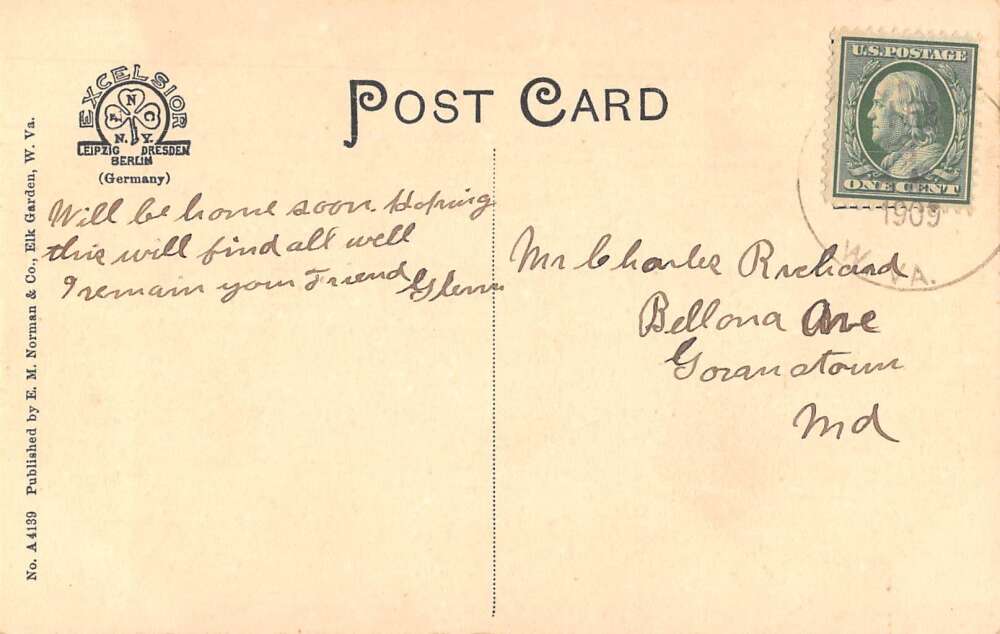 POST CARD
EXCELSIOR
A N C
N. Y.
LEIPZIG DRESDEN
BERLIN
(Germany)
No. A 4139 Published by E. M. Norman & Co., Elk Garden, W. Va.
Will be home soon. Hoping
this will find all well
I remain your Friend
Glenn
U.S. POSTAGE
ONE CENT
1909
W. VA.
Mr Charles Richard
Bellona Ave
Govanstown
Md